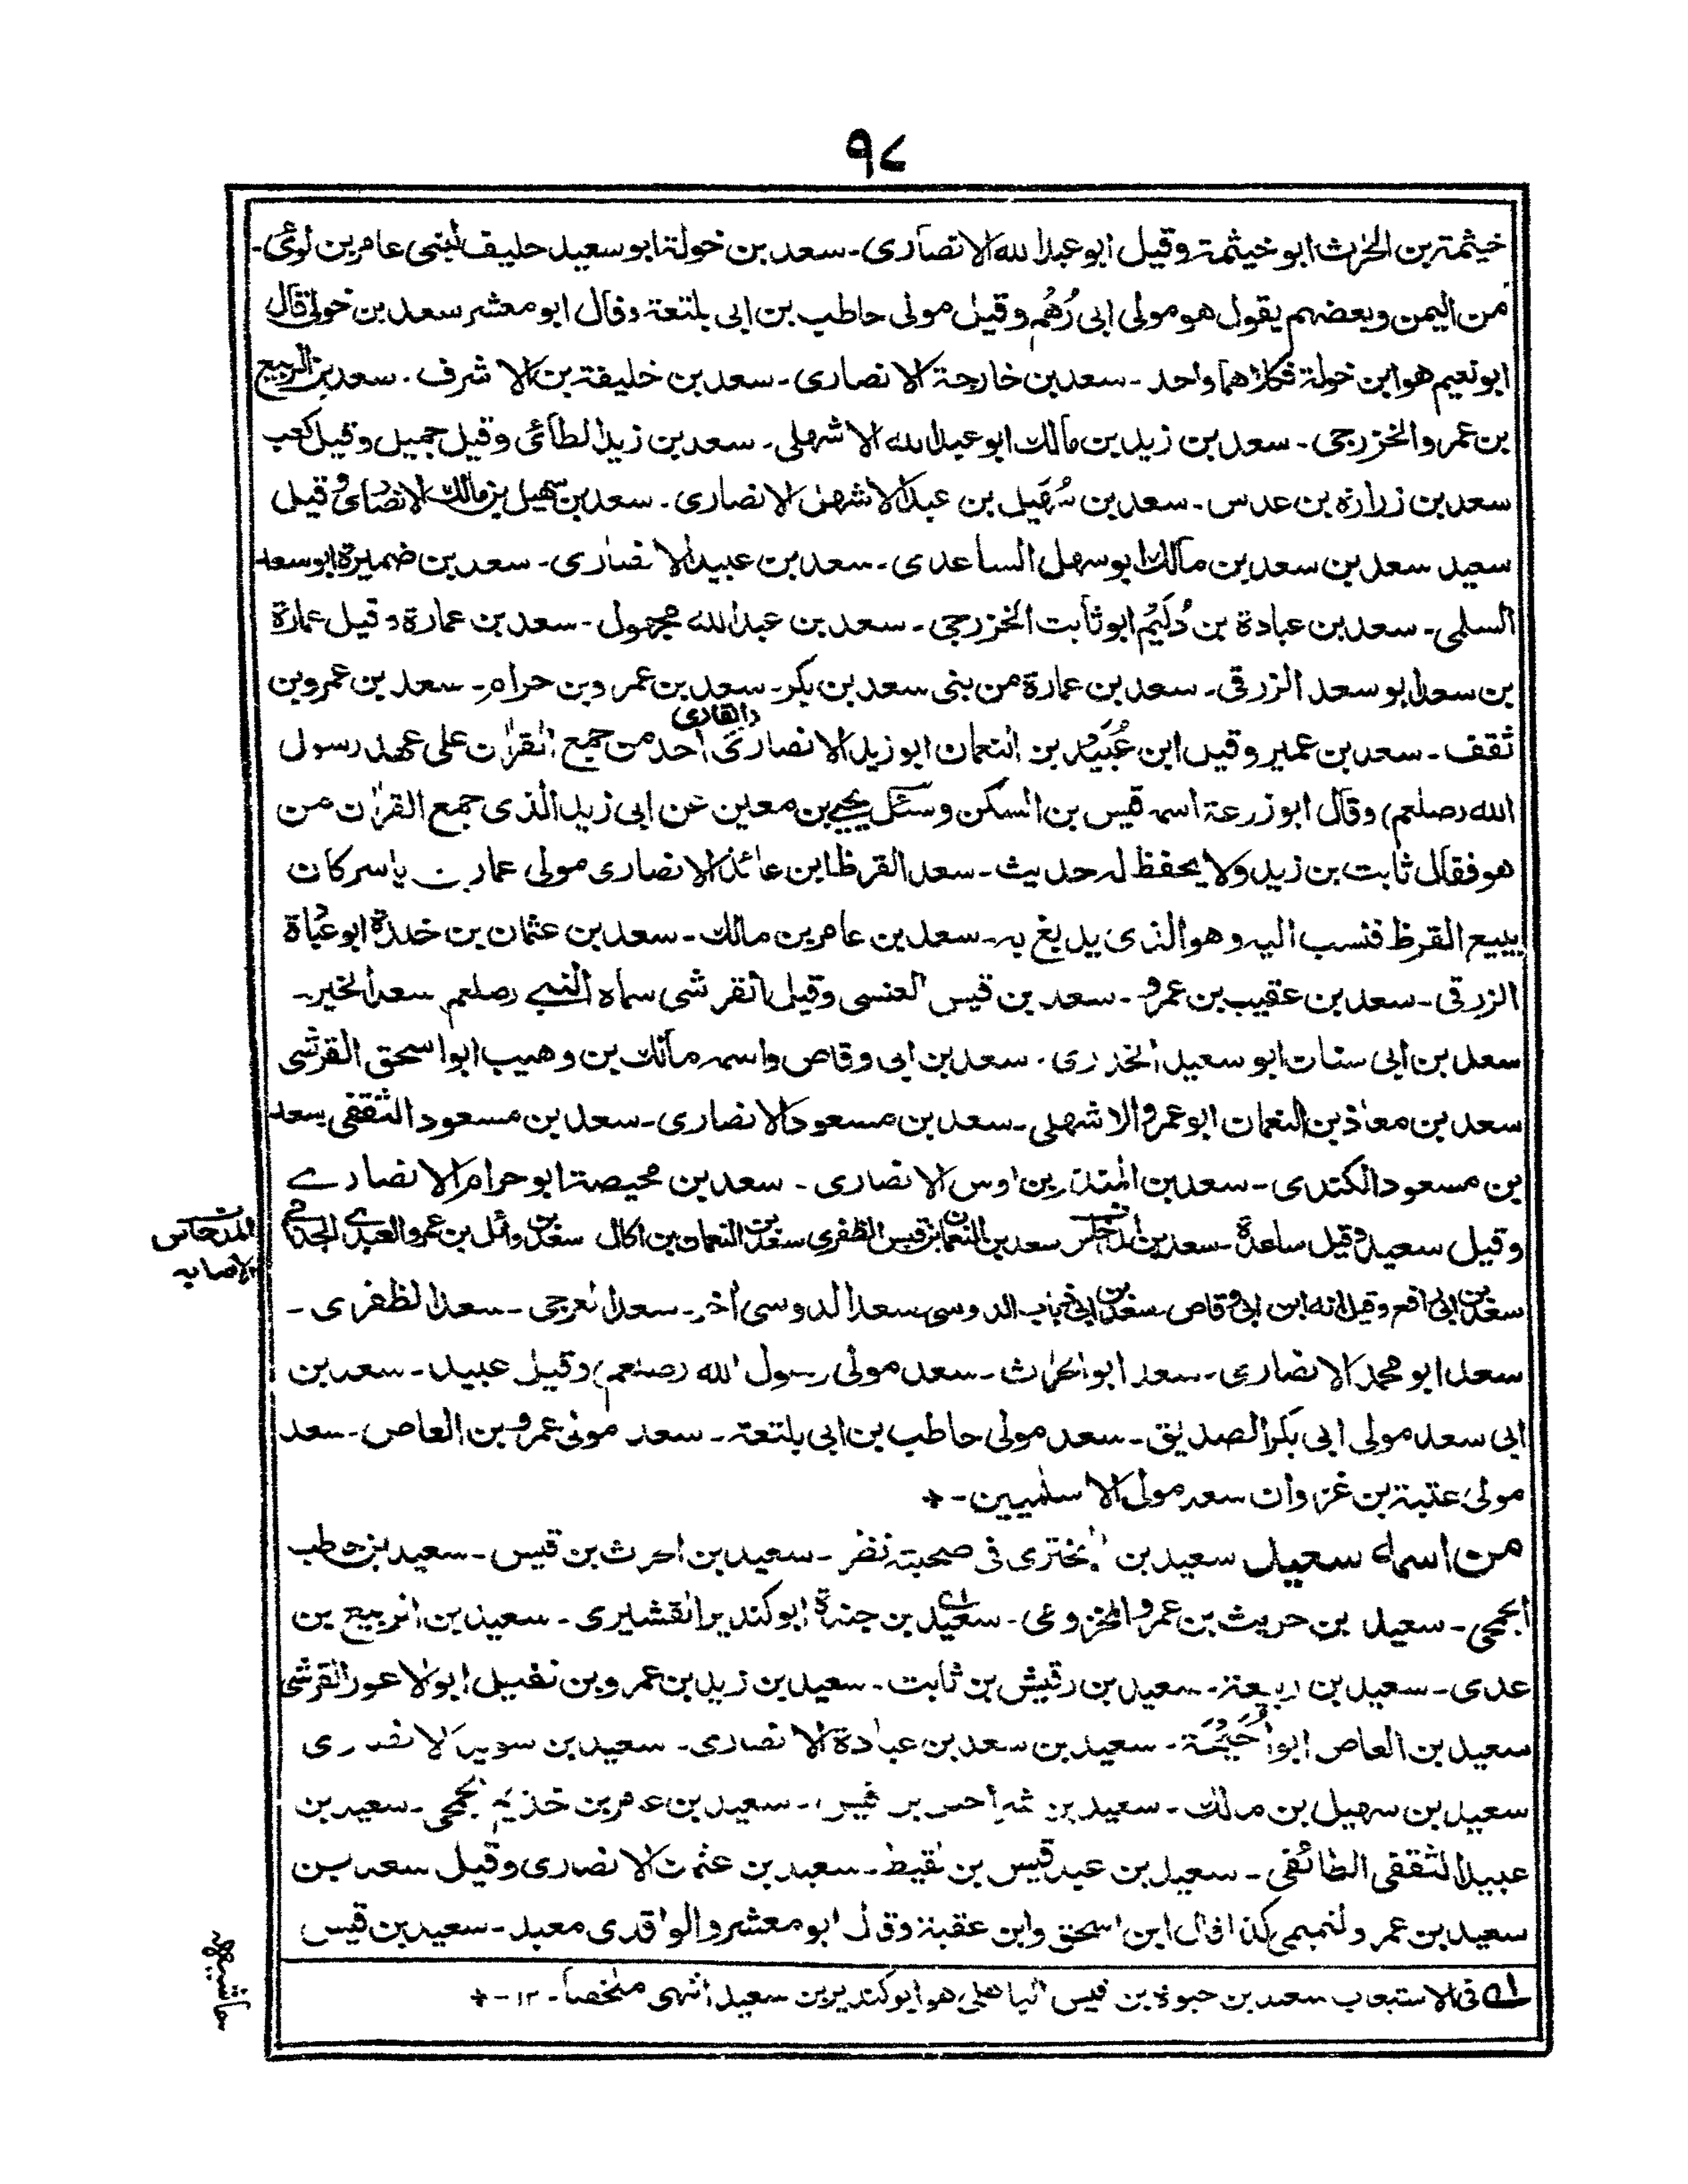 ٩٧
خيثمة بن الحرث ابو خيثمة وقيل ابو عبد الله الانصارى - سعد بن خولة ابو سعيد حليف لبنى عامر بن لوئى -
من اليمن وبعضهم يقول هو مولى ابى رُهُم وقيل مولى حاطب بن ابى بلتعة وقال ابو معشر سعد بن خولى قال
ابو نعيم هو ابن خولة فكلاهما واحد - سعد بن خارجة الانصارى - سعد بن خليفة بن الاشرف . سعد بن الربيع
بن عمرو الخزرجى - سعد بن زيد بن مالك ابو عبد الله الاشهلى - سعد بن زيد الطائى وقيل جميل وقيل كعب
سعد بن زرارة بن عدس - سعد بن سُهَيل بن عبد الاشهل الانصارى - سعد بن سهيل بن مالك الانصارى وقيل
سعيد سعد بن سعد بن مالك ابو سهل الساعدى - سعد بن عبيد الانصارى - سعد بن ضميرة ابو سعد
السلمى - سعد بن عبادة بن دُلَيْم ابو ثابت الخزرجى - سعد بن عبد الله مجهول - سعد بن عمارة وقيل عمارة
بن سعد ابو سعد الزرقى - سعد بن عمارة من بنى سعد بن بكر - سعد بن عمرو بن حرام - سعد بن عمرو بن
ثقف - سعد بن عمير وقيل ابن عُبَيْد بن النعمان ابو زيد الانصارى (القارى) احد من جمع القرٰان على عهد رسول
الله (صلعم) وقال ابو زرعة اسمه قيس بن السكن وسئل يحيى بن معين عن ابى زيد الذى جمع القرٰان من
هو فقال ثابت بن زيد ولا يحفظ له حديث - سعد القرظ ابن عائذ الانصارى مولى عمار بن ياسر كان
يبيع القرظ فنسب اليه وهو الذى يدبغ به - سعد بن عامر بن مالك - سعد بن عثمان بن خلدة ابو عُبادة
الزرقى - سعد بن عقيب بن عمرو - سعد بن قيس العنسى وقيل القرشى سماه النبى (صلعم) سعد الخير -
سعد بن ابى سنان ابو سعيد الخدرى . سعد بن ابى وقاص واسمه مالك بن وهيب ابو اسحق القرشى
سعد بن معاذ بن النعمان ابو عمرو الاشهلى - سعد بن مسعود الانصارى - سعد بن مسعود الثقفى سعد
بن مسعود الكندى - سعد بن المنذر بن اوس الانصارى - سعد بن محيصة ابو حرام الانصارى
وقيل سعيد وقيل ساعدة - سعد بن سعد بن النعمان بن قيس الظفرى سعد بن النعمان بن اكال سعد بن وائل بن عمرو العبدى الجذامى
المدحاس
الاصابه
سعد بن ابى رافع وقيل انه ابن ابى وقاص - سعد بن ابى ذباب الدوسى سعد الدوسى اٰخر - سعد العرجى - سعد الظفرى -
سعد ابو محمد الانصارى - سعد ابو الحرٰث - سعد مولى رسول الله (صلعم) وقيل عبيد - سعد بن
ابى سعد مولى ابى بكر الصديق - سعد مولى حاطب بن ابى بلتعة - سعد مولى عمرو بن العاص - سعد
مولى عتبة بن غزوان سعد مولى الاسلميين -
من اسمه سعيد سعيد بن البخترى فى صحبته نظر - سعيد بن الحرث بن قيس - سعيد بن حاطب
الجمحى - سعيد بن حريث بن عمرو المخزومى - سعيد بن جندة ابو كندير القشيرى - سعيد بن الربيع بن
عدى - سعيد بن ربيعة - سعيد بن رقيش بن ثابت - سعيد بن زيد بن عمرو بن نفيل ابو الاعور القرشى
سعيد بن العاص ابو اُحَيْحَة - سعيد بن سعد بن عبادة الانصارى - سعيد بن سويد الانصارى
سعيد بن سهيل بن مالك - سعيد بن شراحيل بن قيس - سعيد بن عامر بن خذيم الجمحى - سعيد بن
عبيد الثقفى الطائفى - سعيد بن عبد قيس بن لقيط - سعيد بن عثمان الانصارى وقيل سعد - بن
سعيد بن عمرو التميمى كذا قال ابن اسحق وابن عقبة وقال ابو معشر والواقدى معبد - سعيد بن قيس
حاشيه
له فى الاستيعاب سعد بن حيوة بن قيس الباهلى هو ابو كندير بن سعيد انتهى ملخصاً - ١٢ -